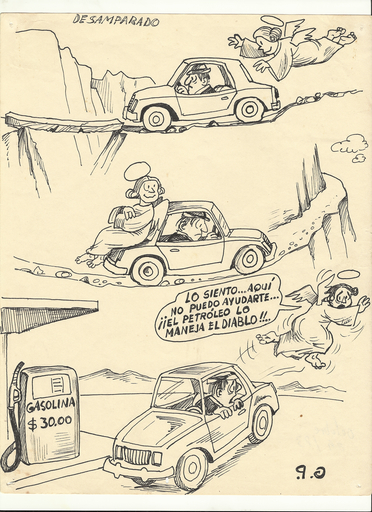 DESAMPARADO
LO SIENTO... AQUI
NO PUEDO AYUDARTE...
¡¡EL PETRÓLEO LO
MANEJA EL DIABLO!!..
GASOLINA
$ 30.00
G.P.